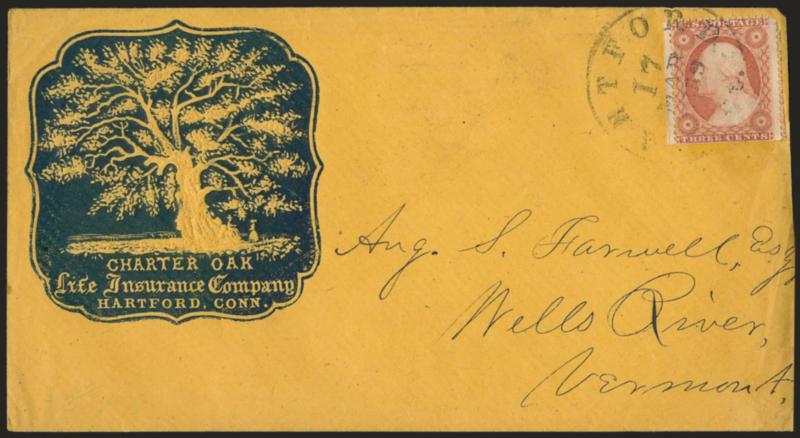 CHARTER OAK
Life Insurance Company
HARTFORD, CONN.
TFOR
17
MAR
U.S. POSTAGE
THREE CENTS
Aug. S. Farwell, Esq
Wells River,
Vermont.